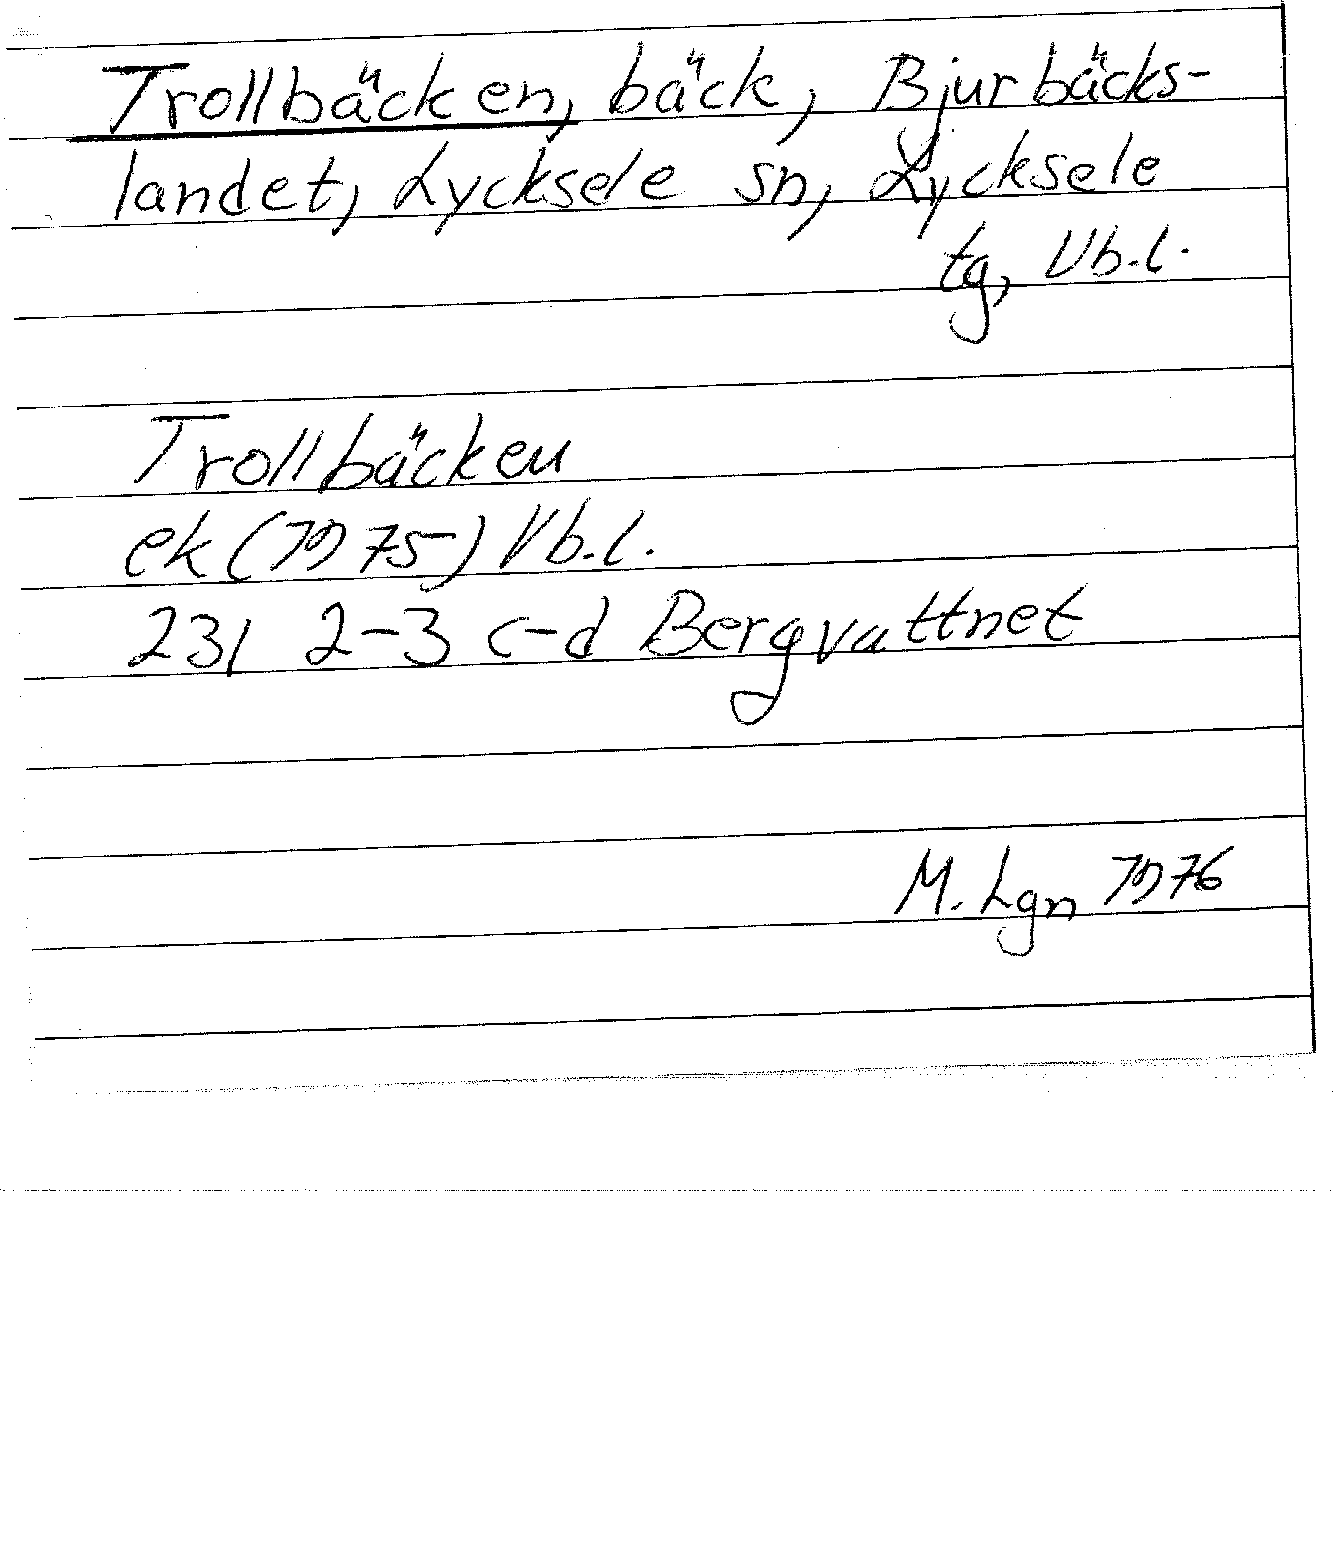 Trollbäcken, bäck, Bjurbäcks-
landet, Lycksele sn, Lycksele
tg, Vb.l.
Trollbäcken
ek (1975) Vb.l.
23I 2-3 c-d Bergvattnet
M. Lgn 1976